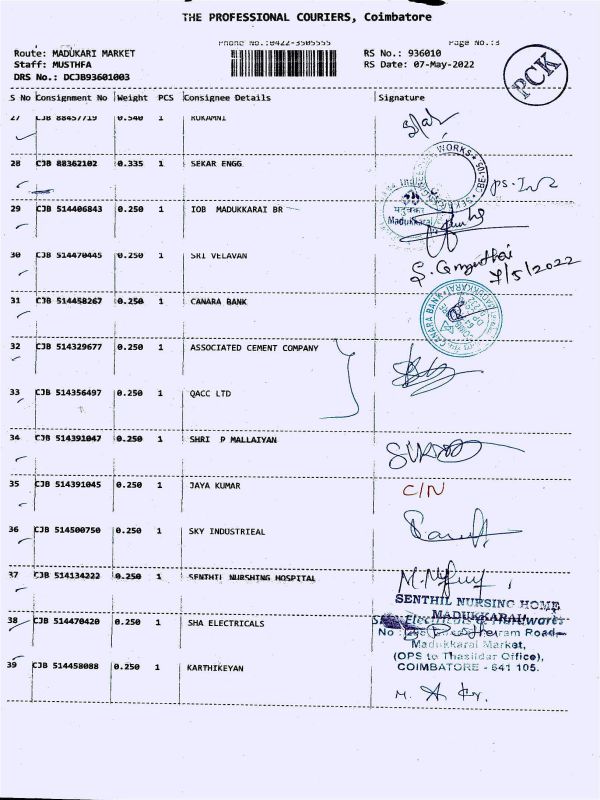 THE PROFESSIONAL COURIERS, Coimbatore
Phone No.:0422-3505555
Page No.:3
Route: MADUKARI MARKET
RS No.: 936010
Staff: MUSTHFA
RS Date: 07-May-2022
DRS No.: DCJB93601003
PCK
S No Consignment No Weight PCS Consignee Details Signature
27 CJB 88457719 0.540 1 RUKAMNI
28 CJB 88362102 0.335 1 SEKAR ENGG
WORKS
29 CJB 514406843 0.250 1 IOB MADUKKARAI BR
Madukkarai
30 CJB 514470445 0.250 1 SRI VELAVAN
7/5/2022
31 CJB 514458267 0.250 1 CANARA BANK
CANARA BANK
32 CJB 514329677 0.250 1 ASSOCIATED CEMENT COMPANY
33 CJB 514356497 0.250 1 QACC LTD
34 CJB 514391047 0.250 1 SHRI P MALLAIYAN
35 CJB 514391045 0.250 1 JAYA KUMAR C/N
36 CJB 514500750 0.250 1 SKY INDUSTRIEAL
37 CJB 514134222 0.250 1 SENTHIL NURSHING HOSPITAL
SENTHIL NURSING HOME
MADUKKARAI
38 CJB 514470420 0.250 1 SHA ELECTRICALS
Madukkarai Market,
(OPS to Thasildar Office),
COIMBATORE - 641 105.
39 CJB 514458088 0.250 1 KARTHIKEYAN